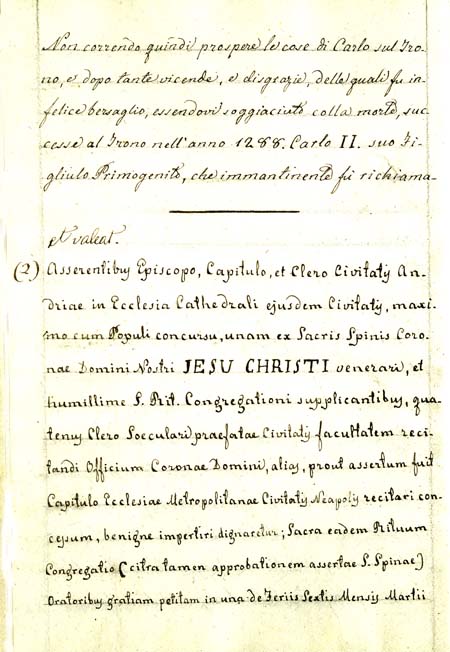 Non correndo quindi prospere le cose di Carlo sul Tro-
no, e dopo tante vicende, e disgrazie, delle quali fu in-
felice bersaglio, essendovi soggiaciuto colla morte, suc-
cesse al Trono nell'anno 1288. Carlo II. suo Fi-
gliulo Primogenito, che immantinente fu richiama-
et valeat.
(2) Asserentibus Episcopo, Capitulo, et Clero Civitatis An-
driae in Ecclesia Cathedrali ejusdem Civitatis, maxi-
mo cum Populi concursu, unam ex Sacris Spinis Coro-
nae Domini Nostri JESU CHRISTI venerari, et
humillime S. Rit. Congregationi supplicantibus, qua-
tenus Clero Soeculari praefatae Civitatis facultatem reci-
tandi Officium Coronae Domini, alias, prout assertum fuit
Capitulo Ecclesiae Metropolitanae Civitatis Neapolis recitari con-
cessum, benigne impertiri dignaretur; Sacra eadem Rituum
Congregatio (citra tamen approbationem assertae S. Spinae)
Oratoribus gratiam petitam in una de Feriis Sextis Mensis Martii